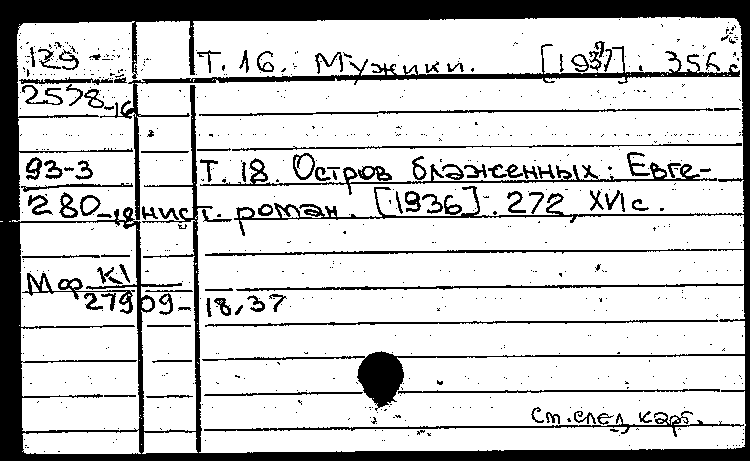 129 Т. 16. Мужики. [1937]. 356 с
2578-16
93-3 Т. 18. Остров блаженных: Евге-
280-18 нист. роман. [1936]. 272, XVI с.
Мф К1
27909- 18,37
См. след. карт.